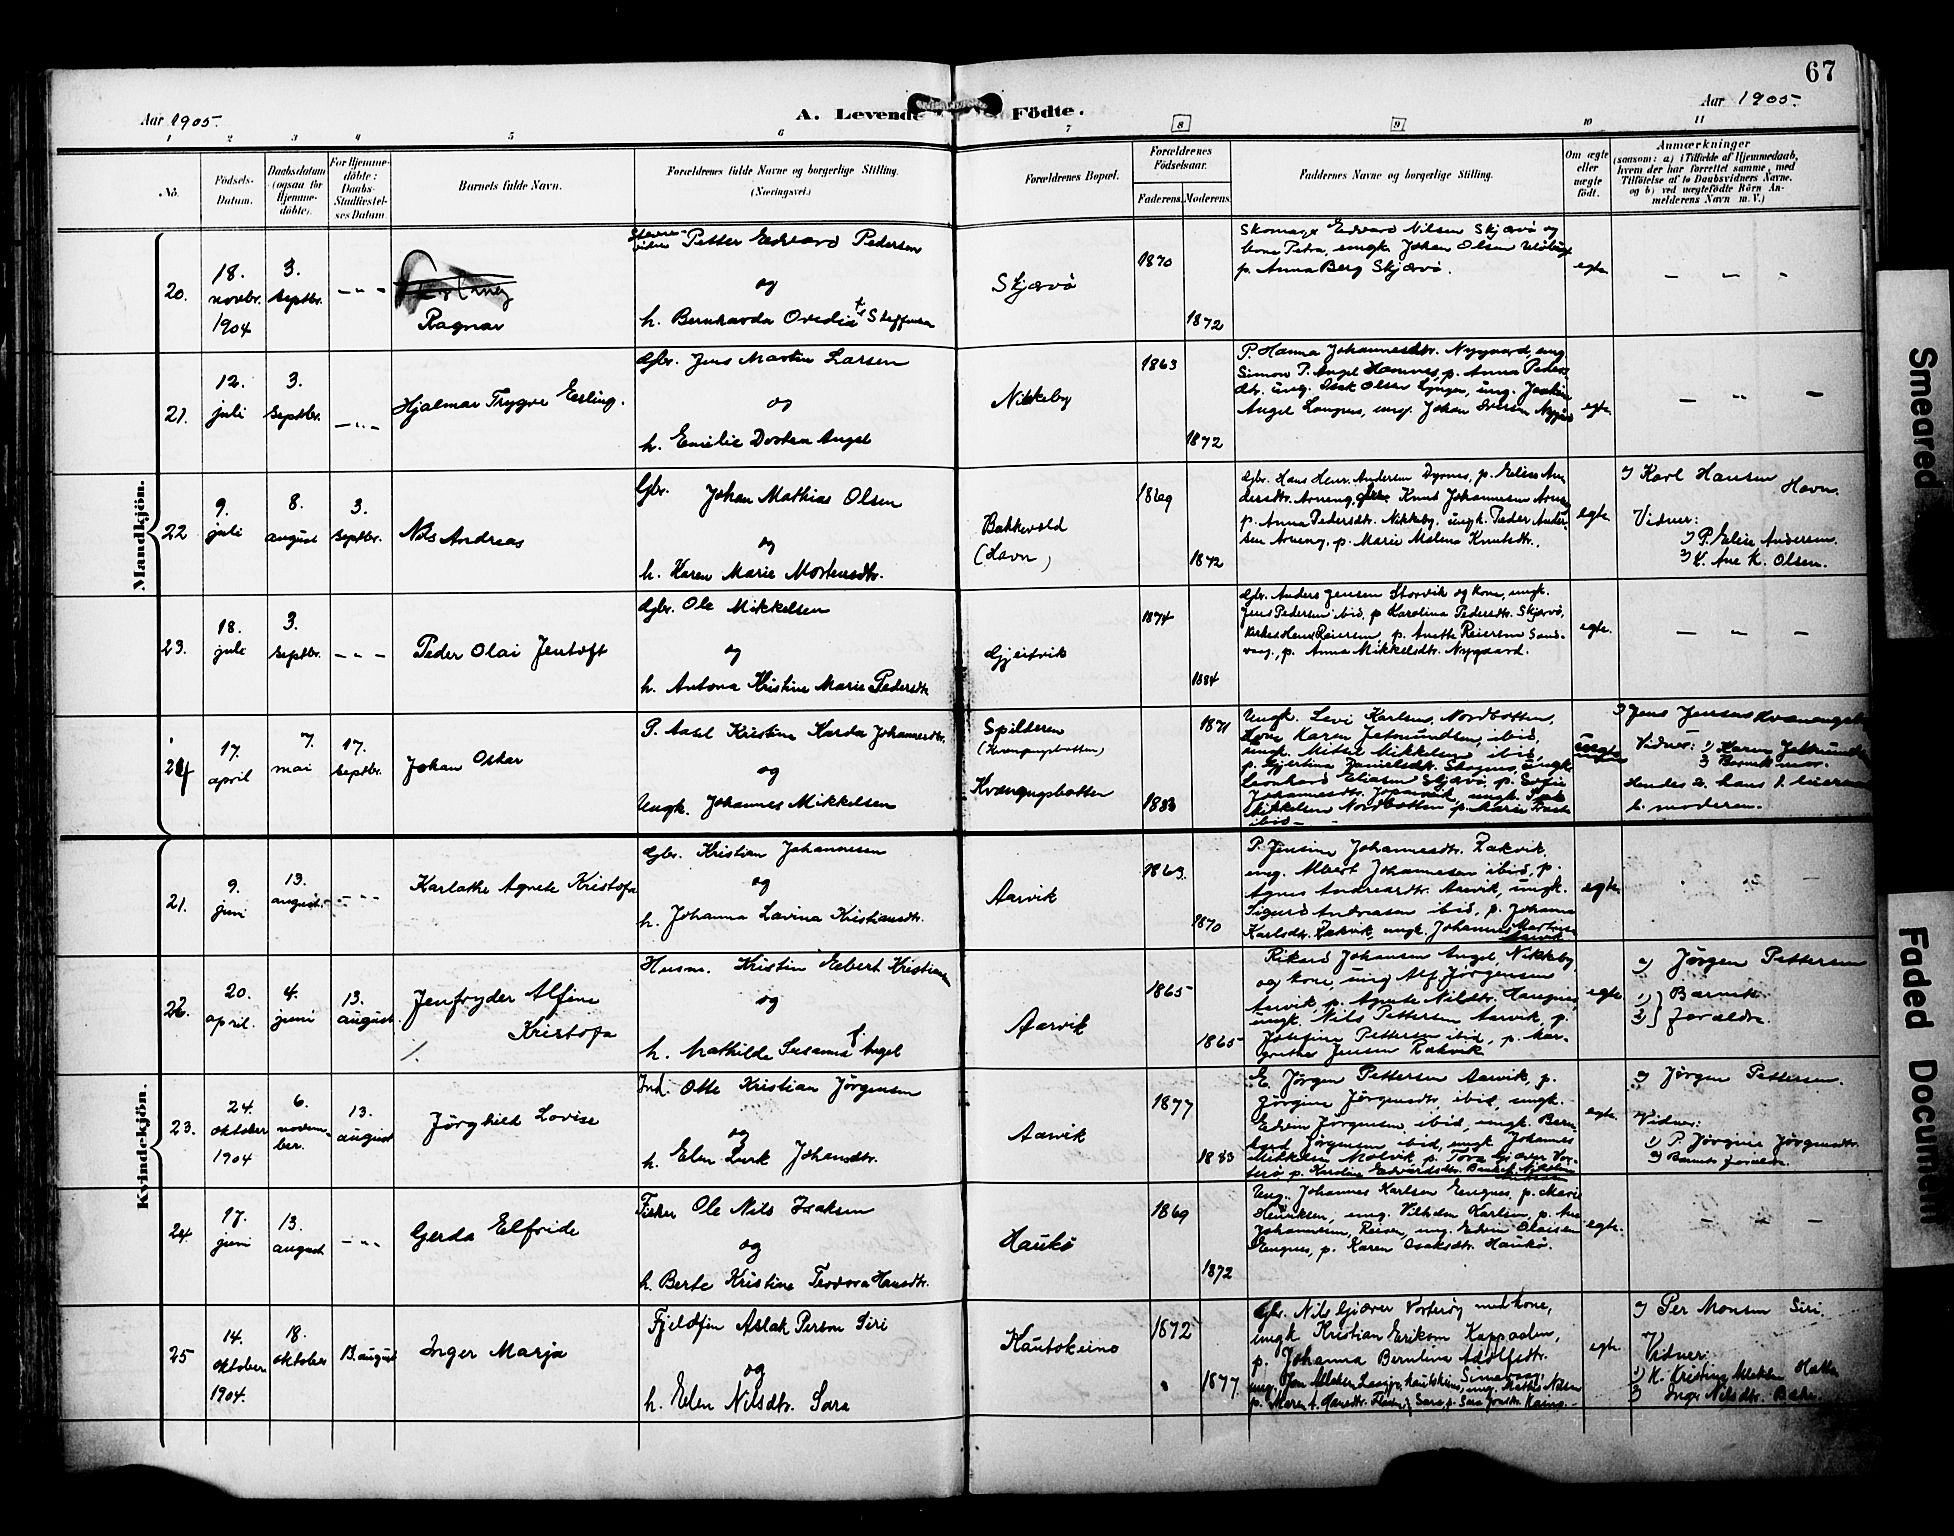 67
Aar 1905.
A. Levende Födte.
Aar 1905.
1 2 3 4 5 6 7 8 9 10 11
No.
Födsels-
Datum.
Daabsdatum
(ogsaa for
Hjemme-
döbte).
For Hjemme-
döbte:
Daabs-
Stadfæstel-
ses Datum.
Barnets fulde Navn.
Forældrenes fulde Navne og borgerlige Stilling.
(Næringsvei.)
Forældrenes Bopæl.
Forældrenes
Födselsaar.
Faderens.
Moderens.
Faddernes Navne og borgerlige Stilling.
Om ægte
eller
uægte
födt.
Anmærkninger
(saasom: a) i Tilfælde af Hjemmedaab,
hvem der har forrettet samme, med
Tilföielse af to Daabsvidners Navne.
og b) ved uægtefödte Börn An-
melderens Navn m. V.)
Mandkjön.
20.
18.
novbr.
1904
3.
septbr.
Ragnar
Petter Edvard Pedersen
og
h. Bernharda Ovedia Steffensen
Skjærvö
1870
1872
Skomager Edvard Nilsen Skjærvö og
kone Petra, ungk. Johan Olsen
p. Anna Berg Skjærvö.
egte
21.
12.
juli
3.
septbr.
Hjalmar Trygve Erling.
Gbr. Jens Martin Larsen
og
h. Emilie Dortea Angel
Nikkeby
1863
1872
P. Hanna Johannesdtr. Nygaard, ung
Simon P. Angel Hamnes, p. Anna Peders
dtr. ung. Isak Olsen Lyngen, ung. Joakim
Angel Langnes, ung. Johan Iversen
egte
22
9.
juli
8.
august
3.
septbr.
Nils Andreas
Gbr. Johan Mathias Olsen
og
h. Karen Marie Mortensdtr.
Bakkevold
(Havn)
1869
1872
Gbr. Hans Henr. Andersen Dyrnes, p. Elise An
dersdtr. Arneng, Knud Johannesen
p. Anna Pedersdtr. Nikkeby, ungk. Peder Ander
sen Arneng, p. Marie Malena Knutsdtr.
egte
Karl Hansen
Havn.
Vidner:
1) P. Elise Andersen
2) K. Ane K. Olsen.
23.
18.
juli
3.
septbr.
Peder Olai Jentoft
Gbr. Ole Mikkelsen
og
h. Antona Kristine Marie Pedersdtr.
Gjeitvik
1874
1884
Gbr. Anders Jensen Storvik og kone, ungk.
Jens Pedersen ibid, p Karolina Pedersdtr. Skjærvö,
Reiersen, p. Anette Reiersen Sand-
vaag, p. Anna Mikkelsdtr. Nygaard.
egte.
24
17.
april
7.
mai
17.
septbr.
Johan Oskar
P. Kristine Harda Johannesdtr.
og
Ungk. Johannes Mikkelsen
Spilderen
(Kvænangsbotten)
Kvænangsbotten
1871
1883
Ungk. Levi Karlsen, Nordbotten,
Kone Karen Jetmundsen, ibid,
ungk. Mikkel Mikkelsen, ibid,
p. Gjertina Danielsdtr. Skognes, ungk.
Leonhard Eliasen Skjærvö, p. Sofie
Johannesdtr.
Mikkelsen Nordbotten, p. Marie
ibid
uegte
Jens Jensen
Vidner: 1) Karen Jetmundsen
2) Barnets mor.
hendes 2. hans 1. leierm
b. moderen.
Kvindekjön.
21.
9.
juni
13.
august.
Karlathe Agnete Kristofa
Gbr. Kristian Johannesen
og
h. Johanna Lavina Kristiansdtr.
Aarvik
1863
1870
P. Jensine Johannesdtr. Rakvik,
ung. Albert Johannesen ibid, p.
Agnes Andreasdtr. Aarvik, ungk.
Sigurd Andreasen ibid, p. Johanna
Karlsdtr. Rakvik, ungk. Johannes Martinsen
Aarvik
egte
22.
20.
april.
4.
juni
13.
august
Jenfryder Alfine
Kristofa
Husm. Kristin Edbert Kristiansen
og
h. Mathilde Susanna Angel
Aarvik
1865
1865
Rikard Johansen Angel, Nikkeby
og kone ung Alf Jörgensen
Aarvik p. Agnete Nilsdtr. Haugnes
ungk. Nils Pettersen Aarvik, p.
Josefine Pettersen ibid, p. Mar-
grethe Jensen Rakvik
egte
a) Jörgen Pettersen
1) Barnets
2) forældre.
23.
24.
oktober
1904
6.
novem-
ber.
13.
august
Jörghild Lovise
Ind. Otte Kristian Jörgensen
og
h. Elen Johansdtr.
Aarvik
1877
1883
E. Jörgen Pettersen Aarvik, p.
Jörgine Jörgensdtr. ibid, ungk.
Edvin Jörgensen, ibid, ungk. Bern-
hard Jörgensen ibid, ungk Johannes
Mikkelsen Molvik p. Tora Giæver Vor-
terö p. Edvardsdtr.
egte
a) Jörgen Pettersen.
Vidner:
1) P. Jörgine Jörgensdtr.
2) Barnets forældre
24.
17.
juni
13.
august
Gerda Elfride
Fisker Ole Nils Isaksen
og
h. Berte Kristine Teodora Hansdtr.
Haukö
1869
1872
Ung. Johannes Karlsen Engnes, p. Marie
Henriksen, ung. Vilhelm Karlsen, p. Ane
Johannesen, Reisen, ung. Edvin Olausen
Engnes, p. Karen Isaksdtr. Haukö.
egte.
25
14.
oktober
1904.
18.
oktober
13. august
Inger Marja
Fjeldfin Aslak Person Siri
og
h. Elen Nilsdtr. Sara
Kautokeino
1872
1877
Gbr. Nils Giæver Vorteröy med kone,
ungk Kristian Erikson Kappaalen,
p. Johanna Berntina Adolfsdtr.
egte
a) Per Monsen Siri.
Vidner:
1) K. Kristine Hætta
2) Inger Nilsdtr.
Smeared
Faded Document